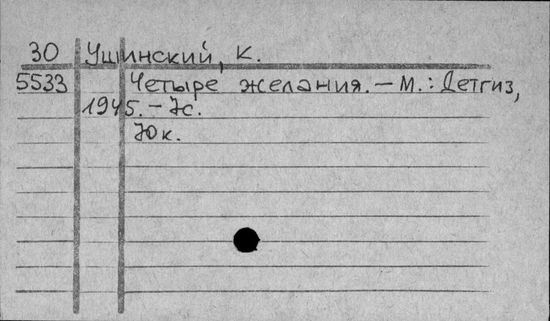 30 Ушинский, К.
5533 Четыре желания. – М.: Детгиз,
1945. – 7с.
70к.